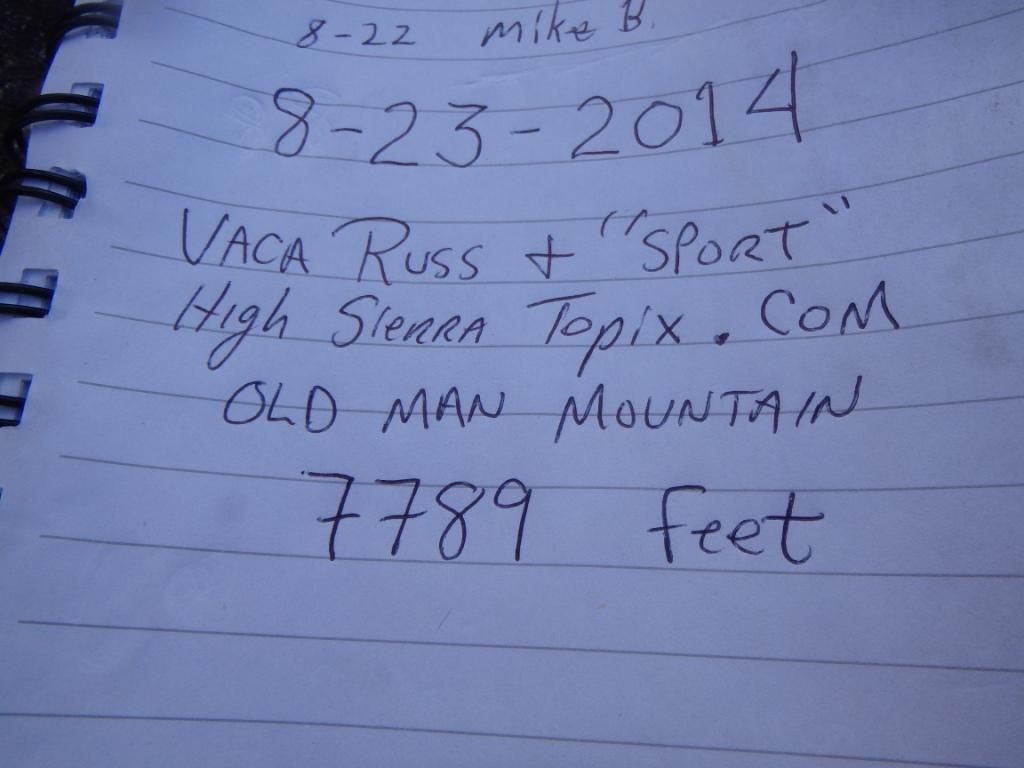 8-22 Mike B.
8-23-2014
VACA RUSS + "SPORT"
HIgh SIERRA TopIX.COM
OLD MAN MOUNTAIN
7789 feet